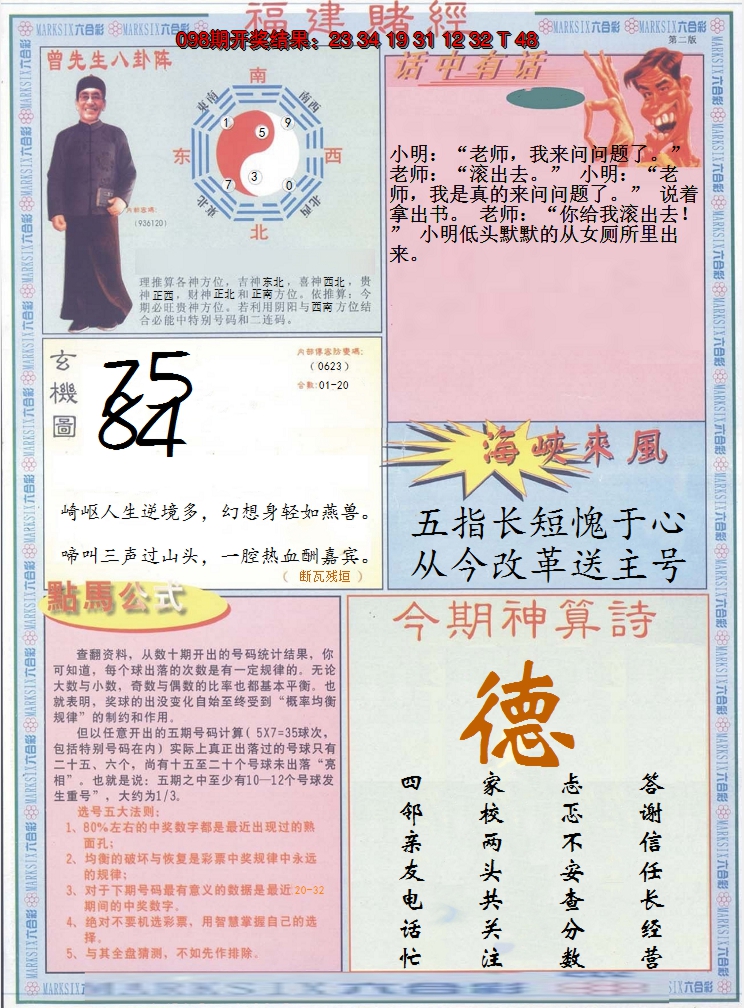 福建賭經
098期开奖结果：23 34 19 31 12 32 T 48
第二版
曾先生八卦阵
南
东南
西南
1
5
9
东
西
7
3
0
东北
西北
北
(936120)
理推算各神方位，吉神东北，喜神西北，贵
神正西，财神正北和正南方位。依推算：今
期必旺贵神方位。若利用阴阳与西南方位结
合必能中特别号码和二连码。
话中有话
小明：“老师，我来问问题了。”
老师：“滚出去。” 小明：“老
师，我是真的来问问题了。” 说着
拿出书。 老师：“你给我滚出去！
” 小明低头默默的从女厕所里出
来。
玄機圖
75
84
（0623）
合数:01-20
崎岖人生逆境多，幻想身轻如燕兽。
啼叫三声过山头，一腔热血酬嘉宾。
（ 断瓦残垣 ）
海峽來風
五指长短愧于心
从今改革送主号
點馬公式
查翻资料，从数十期开出的号码统计结果，你
可知道，每个球出落的次数是有一定规律的。无论
大数与小数，奇数与偶数的比率也都基本平衡。也
就表明，奖球的出没变化自始至终受到“概率均衡
规律”的制约和作用。
但以任意开出的五期号码计算（5X7=35球次，
包括特别号码在内）实际上真正出落过的号球只有
二十五、六个，尚有十五至二十个号球未出落“亮
相”。也就是说：五期之中至少有10—12个号球发
生重号”，大约为1/3。
选号五大法则：
1、80%左右的中奖数字都是最近出现过的熟
面孔；
2、均衡的破坏与恢复是彩票中奖规律中永远
的规律；
3、对于下期号码最有意义的数据是最近20-32
期间的中奖数字。
4、绝对不要机选彩票，用智慧掌握自己的选
择。
5、与其全盘猜测，不如先作排除。
今期神算詩
德
答谢信任长经营
忐忑不安查分数
家校两头共关注
四邻亲友电话忙
MARKSIX六合彩